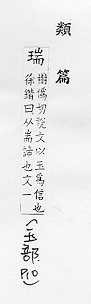 類篇
瑞
樹偽切說文以玉為信也
徐鍇曰从耑諦也文一
(玉部 P10)